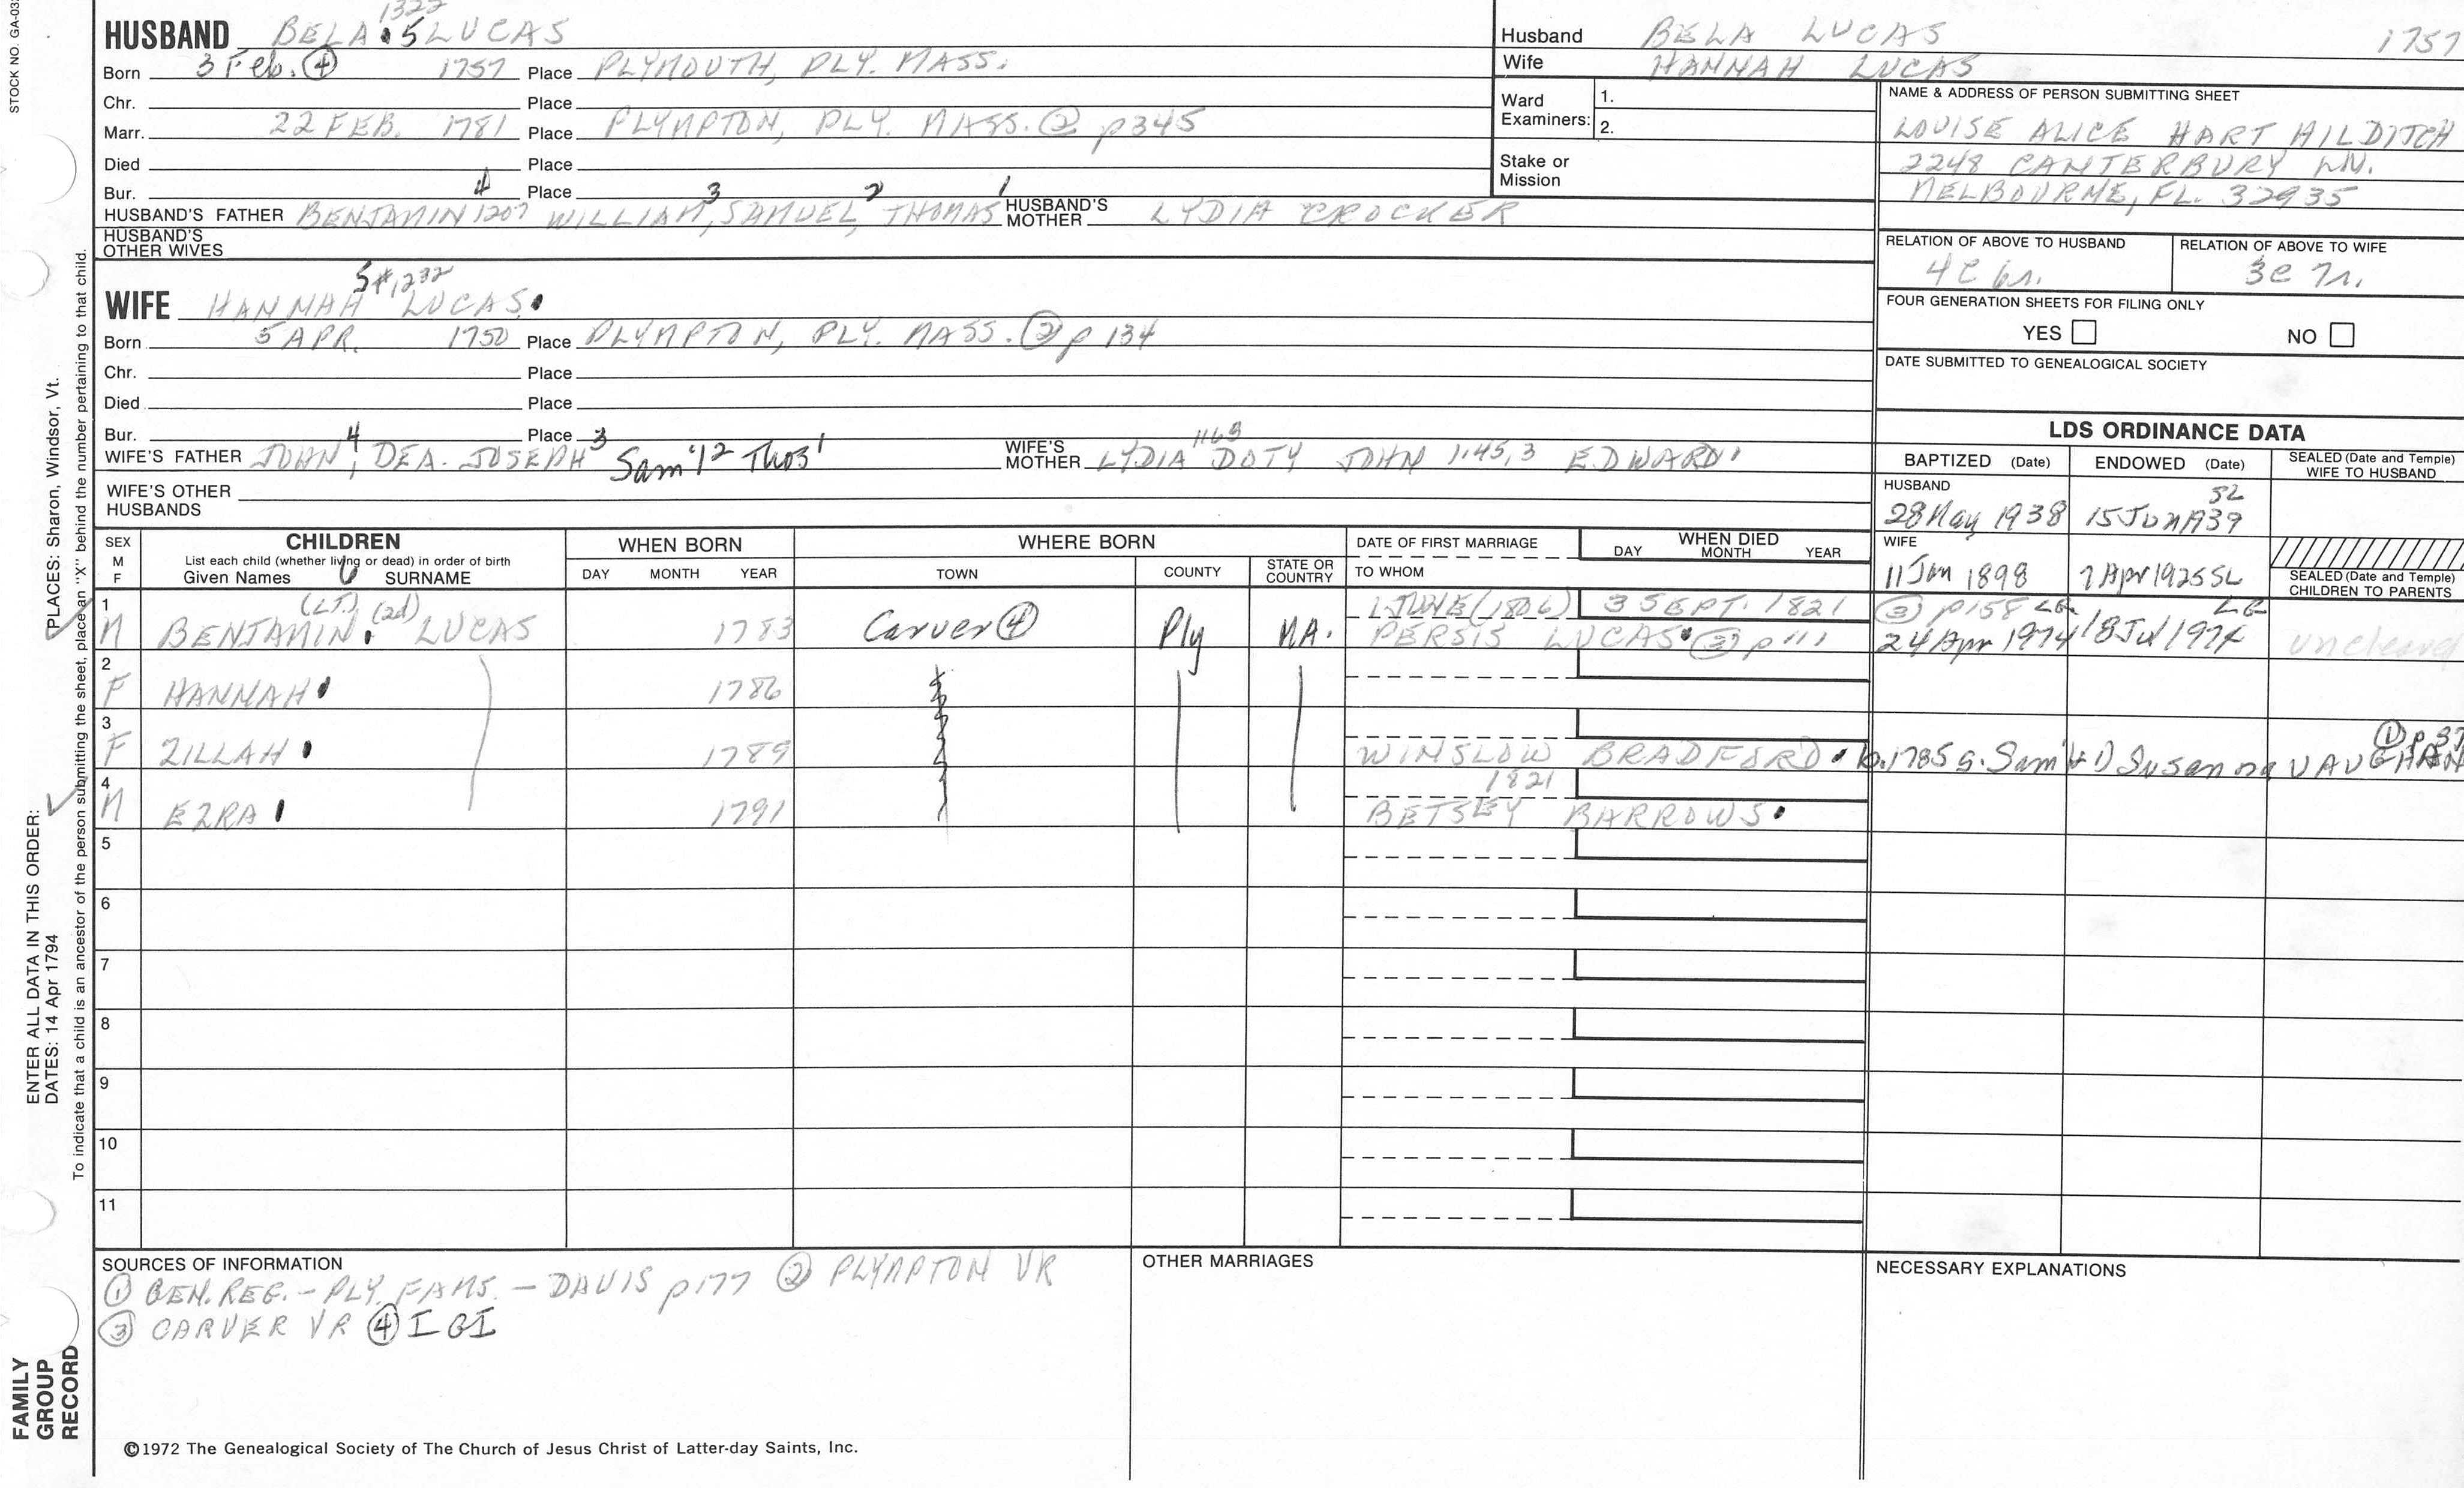 STOCK NO. GA-03
1322
HUSBAND BELA 5 LUCAS
Born 3 Feb. ④ 1757 Place PLYMOUTH, PLY. MASS.
Chr. Place
Marr. 22 FEB. 1781 Place PLYMPTON, PLY. MASS. ② p345
Died Place
Bur. Place
4 3 2 1
HUSBAND'S FATHER BENJAMIN 1207 WILLIAM, SAMUEL, THOMAS HUSBAND'S MOTHER LYDIA CROCKER
HUSBAND'S OTHER WIVES
5 #1,232
WIFE HANNAH LUCAS
Born 5 APR. 1750 Place PLYMPTON, PLY. MASS. ② p 134
Chr. Place
Died Place
Bur. Place
4 3 1163
WIFE'S FATHER JOHN, DEA. JOSEPH Sam'l 2 Thos 1 WIFE'S MOTHER LYDIA DOTY JOHN 1145,3 EDWARD 1
WIFE'S OTHER HUSBANDS
Husband BELA LUCAS 1757
Wife HANNAH LUCAS
Ward Examiners: 1.
2.
Stake or Mission
NAME & ADDRESS OF PERSON SUBMITTING SHEET
LOUISE ALICE HART HILDITCH
2248 CANTERBURY LN.
MELBOURNE, FL. 32935
RELATION OF ABOVE TO HUSBAND RELATION OF ABOVE TO WIFE
4C 6r. 3C 7r.
FOUR GENERATION SHEETS FOR FILING ONLY
YES NO
DATE SUBMITTED TO GENEALOGICAL SOCIETY
LDS ORDINANCE DATA
BAPTIZED (Date) ENDOWED (Date) SEALED (Date and Temple) WIFE TO HUSBAND
HUSBAND
28 May 1938 15 Jun 1939 SL
WIFE
11 Jan 1898 7 Apr 1925 SL
SEALED (Date and Temple) CHILDREN TO PARENTS
SEX M F CHILDREN
List each child (whether living or dead) in order of birth
Given Names SURNAME
WHEN BORN
DAY MONTH YEAR
WHERE BORN
TOWN COUNTY STATE OR COUNTRY
DATE OF FIRST MARRIAGE
TO WHOM
WHEN DIED
DAY MONTH YEAR
1 (LT.) (2d) 1 JUNE (1806) 3 SEPT. 1821 ③ p158
M BENJAMIN LUCAS 1783 Carver ④ Ply MA. PERSIS LUCAS ③ p 111 24 Apr 1974 18 Jul 1974 uncleared
2
F HANNAH 1786
3
F ZILLAH 1789 WINSLOW BRADFORD b. 1785 s. Sam'l & Susanna VAUGHAN ① p 37
4 1821
M EZRA 1791 BETSEY BARROWS
5
6
7
8
9
10
11
SOURCES OF INFORMATION
① GEN. REG. - PLY. FAMS. - DAVIS p177 ② PLYMPTON VR
③ CARVER VR ④ IGI
OTHER MARRIAGES
NECESSARY EXPLANATIONS
©1972 The Genealogical Society of The Church of Jesus Christ of Latter-day Saints, Inc.
FAMILY GROUP RECORD
ENTER ALL DATA IN THIS ORDER:
DATES: 14 Apr 1794
PLACES: Sharon, Windsor, Vt.
To indicate that a child is an ancestor of the person submitting the sheet, place an "X" behind the number pertaining to that child.